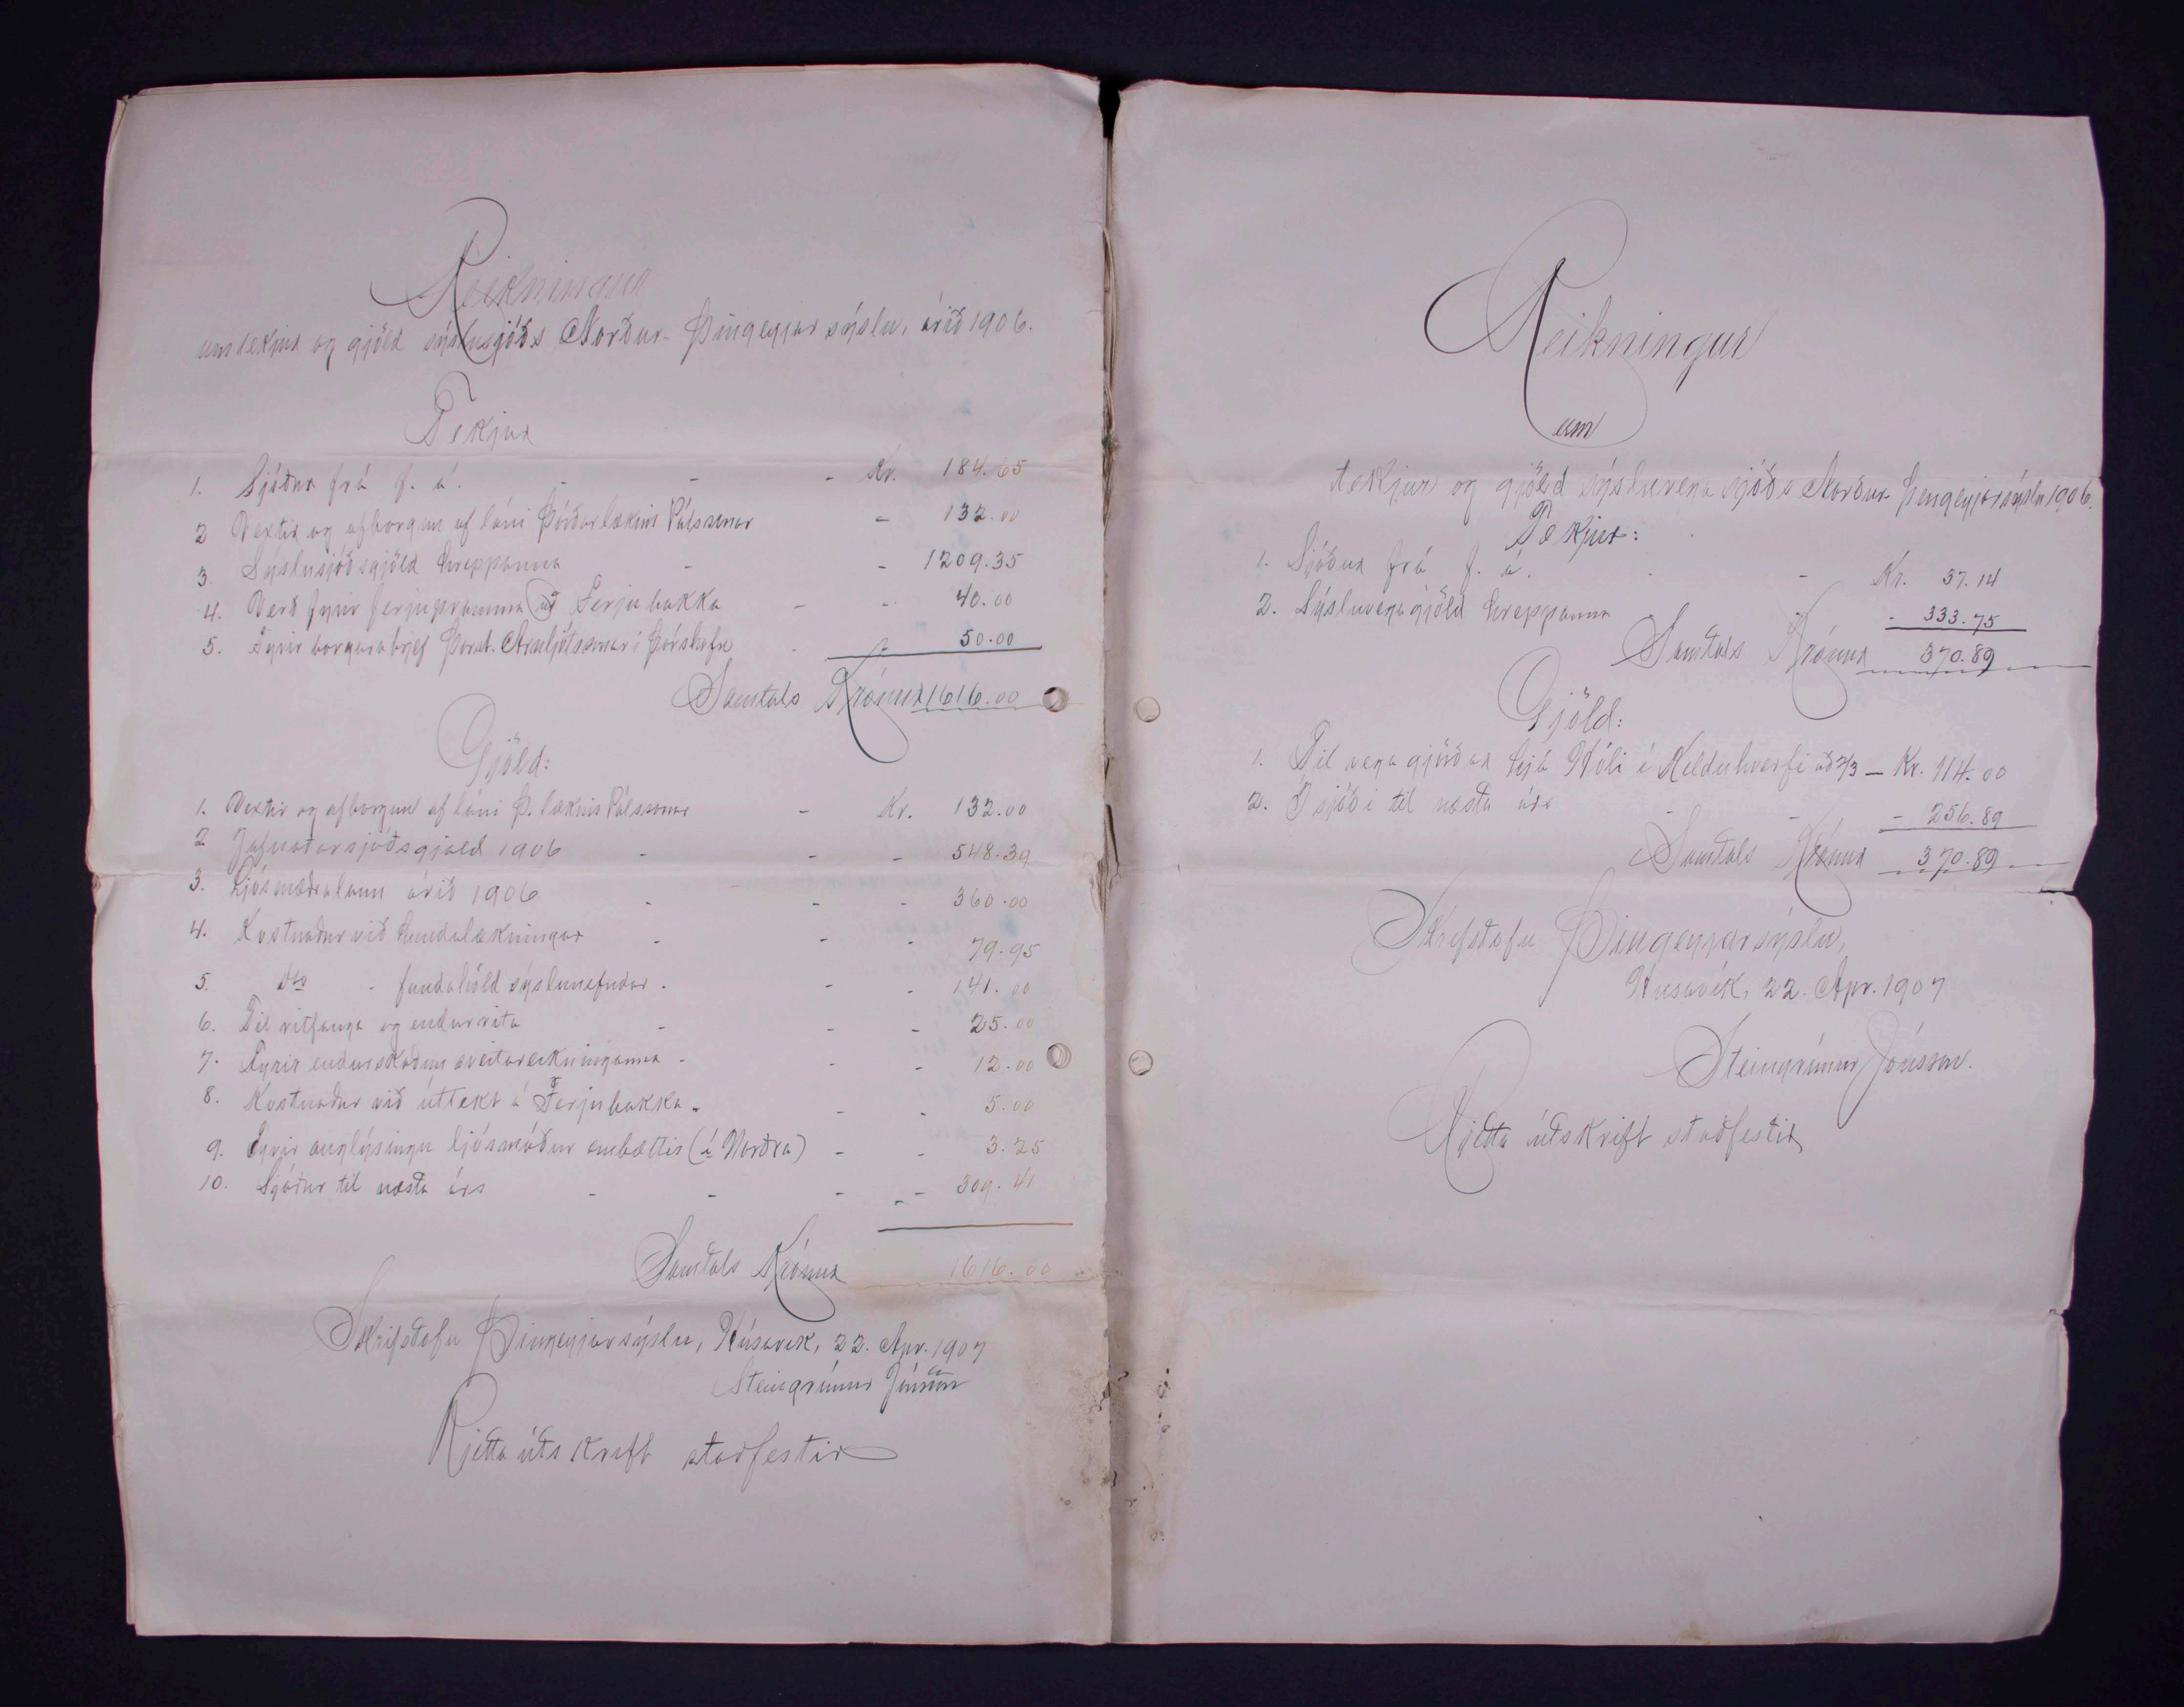 Reikningur
um tekjur og gjöld sýslusjóðs Norður-Þingeyjarsýslu, árið 1906.
Tekjur
1. Sjóður frá f. á. - - - Kr. 184.65
2 Vextir og afborgun af láni Þórðar læknis Pálssonar - 132.00
3. Sýslusjóðsgjöld hreppanna - - 1209.35
4. Verð fyrir ferjupramma að Ferjubakka - - 40.00
5. Fyrir borgarabrjef Þorst. Arnljótssonar í Þórshöfn - - 50.00
Samtals Krónur 1616.00
Gjöld:
1. Vextir og afborgun af láni Þ. læknis Pálssonar - Kr. 132.00
2 Jafnaðarsjóðsgjald 1906 - - - 548.39
3. Ljósmæðralaun árið 1906 - - - 360.00
4. Kostnaður við hundalækningar - - - 79.95
5. do - fundahöld sýslunefndar - - - 141.00
6. Til ritfanga og endurrita - - - 25.00
7. Fyrir endurskoðun sveitareikninganna - - - 12.00
8. Kostnaður við úttekt á Ferjubakka - - - 5.00
9. Fyrir auglýsingu ljósmóður embættis (í Norðra) - - 3.25
10. Sjóður til næsta árs - - - - - 309.41
Samtals Krónur 1616.00
Skrifstofu Þingeyjarsýslu, Húsavík, 22. Apr. 1907
Steingrímur Jónsson
Rjetta útskrift staðfestir
Reikningur
um
tekjur og gjöld sýsluvegasjóðs Norður-Þingeyjarsýslu 1906.
Tekjur:
1. Sjóður frá f. á. - Kr. 37.14
2. Sýsluvegagjöld hreppanna - - 333.75
Samtals Krónur 370.89
Gjöld:
1. Til vegagjörðar hjá Hóli í Kelduhverfi að 2/3 - Kr. 114.00
2. Í sjóði til næsta árs - - - 256.89
Samtals Krónur 370.89
Skrifstofu Þingeyjarsýslu,
Húsavík, 22. Apr. 1907
Steingrímur Jónsson.
Rjetta útskrift staðfestir